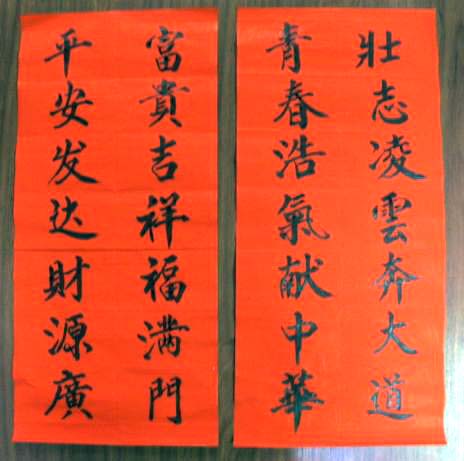 壯志凌雲奔大道
青春浩氣献中華
富貴吉祥福满門
平安发达財源廣